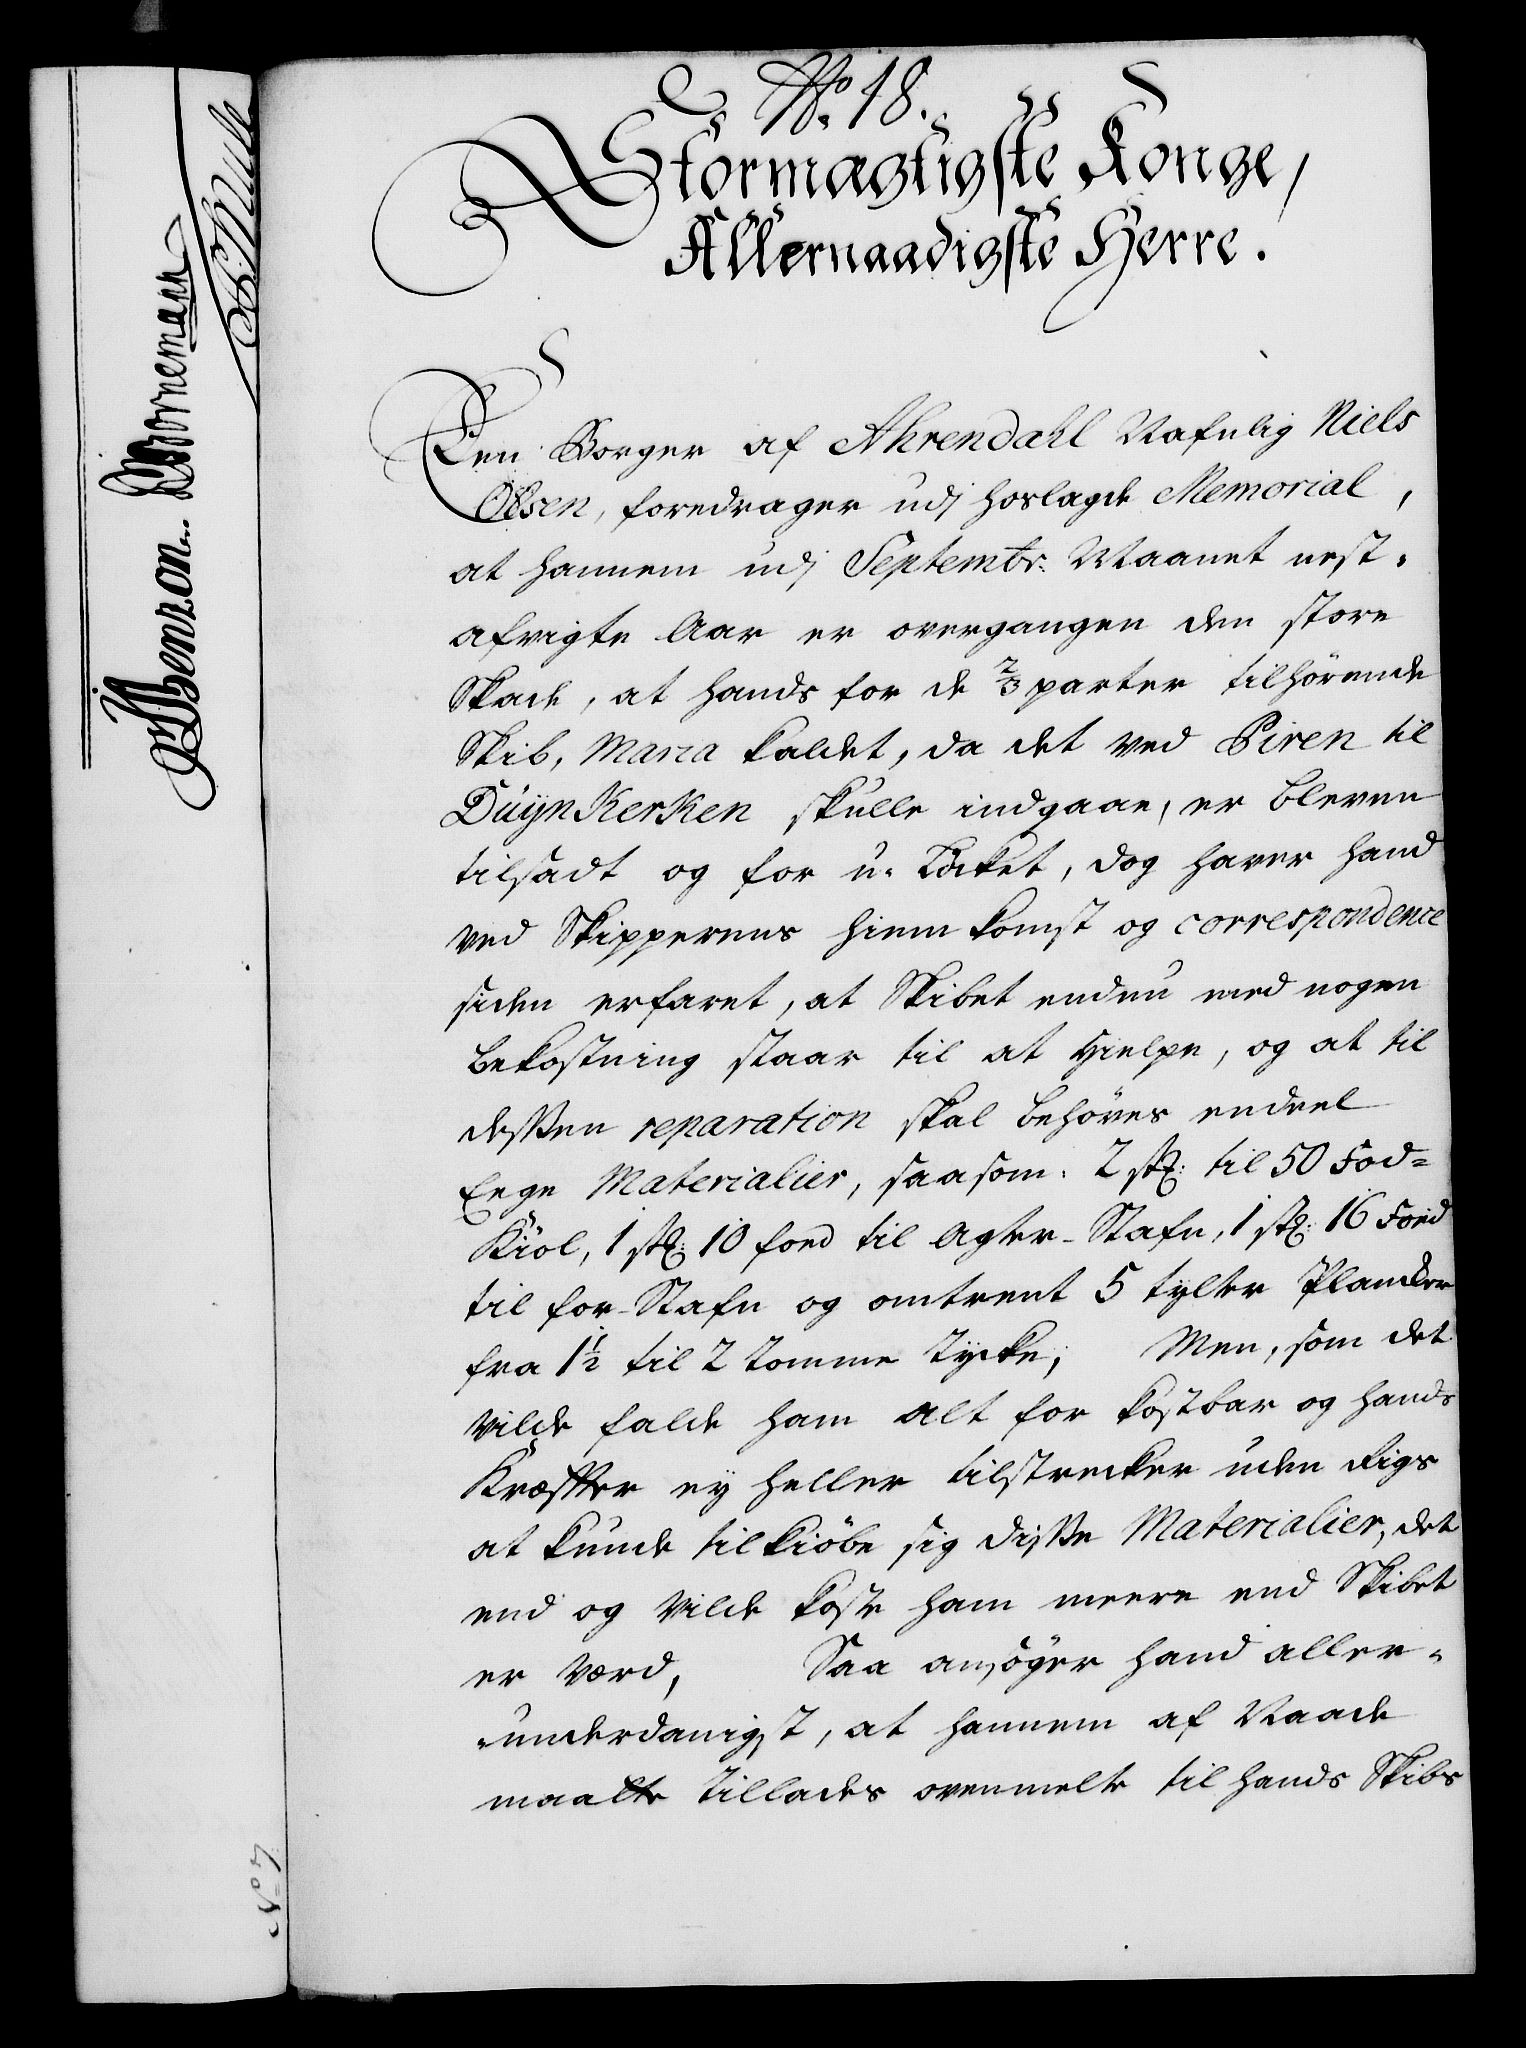 No. 18.
Stormægtigste Konge,
Allernaadigste Herre.
Een Borger af Ahrendahl Nafnlig Niels
Olsen, foredrager udj hoslagde Memorial,
at hannem udj Septembr. Maanet nest-
afvigte Aar er overgangen den store
Skade, at hands for de 2/3 parter tilhörende
Skib, Maria kaldet, da det ved Piren til
Duÿnkerken skulle indgaae, er bleven
tilsadt og for u-lÿcket, dog haver hand
ved Skipperens hiem komst og correspondence
siden erfaret, at Skibet endnu med nogen
bekostning staar til at hielpe, og at til
dessen reparation skal behöves endeel
Eege Materialier, saasom: 2 stk: til 50 Fod-
Kiöl, 1 stk: 10 foed til Agter-Stafn, 1 stk: 16 Foed
til for-Stafn og omtrent 5 tylter Plancker
fra 1 1/2 til 2 Tomme Tycke; Men, som det
vilde falde ham alt for kostbar og hands
Kræfter ey heller tilstrecker uden Rigs
at kunde tilkiöbe sig disse Materialier, det
end og vilde koste ham meere end Skibet
er værd, Saa ansöger hand aller-
-underdanigst, at hannem af Naade
maatte tillades ovenmelte til hands Skibs
JBenzon. Bornemann
No 7